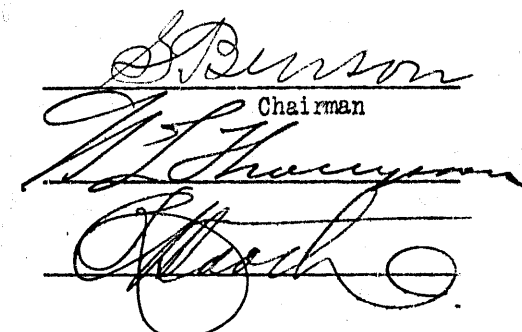 G. Benson
Chairman
W L Thompson